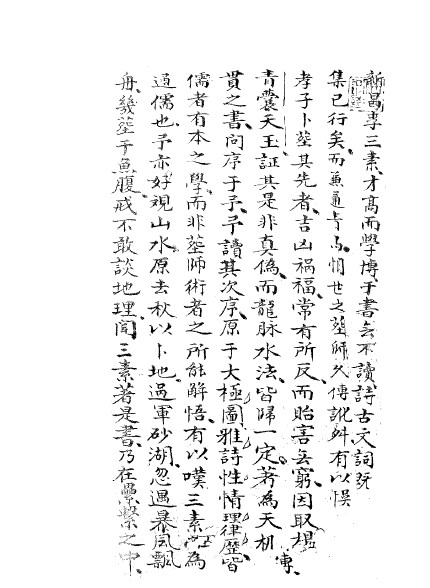 新昌李三素才高而學博于書無不讀詩古文詞既
集已行矣而兼通青烏悯世之塟師久傳訛舛有以悮
孝子卜塟其先者吉凶禍福常有所反而貽害無窮因取楊
青囊天玉証其是非真偽而龍脉水法皆歸一定著為天机
貫之書問序于予予讀其次序原于大極圖雅詩性情理律歷皆
儒者有本之學而非塟師術者之所能解悟有以嘆三素為
通儒也予亦好視山水原去秋以卜地過軍砂湖忽遇暴風飄
舟幾塟于魚腹戒不敢談地理聞三素著是書乃在纍繫之中